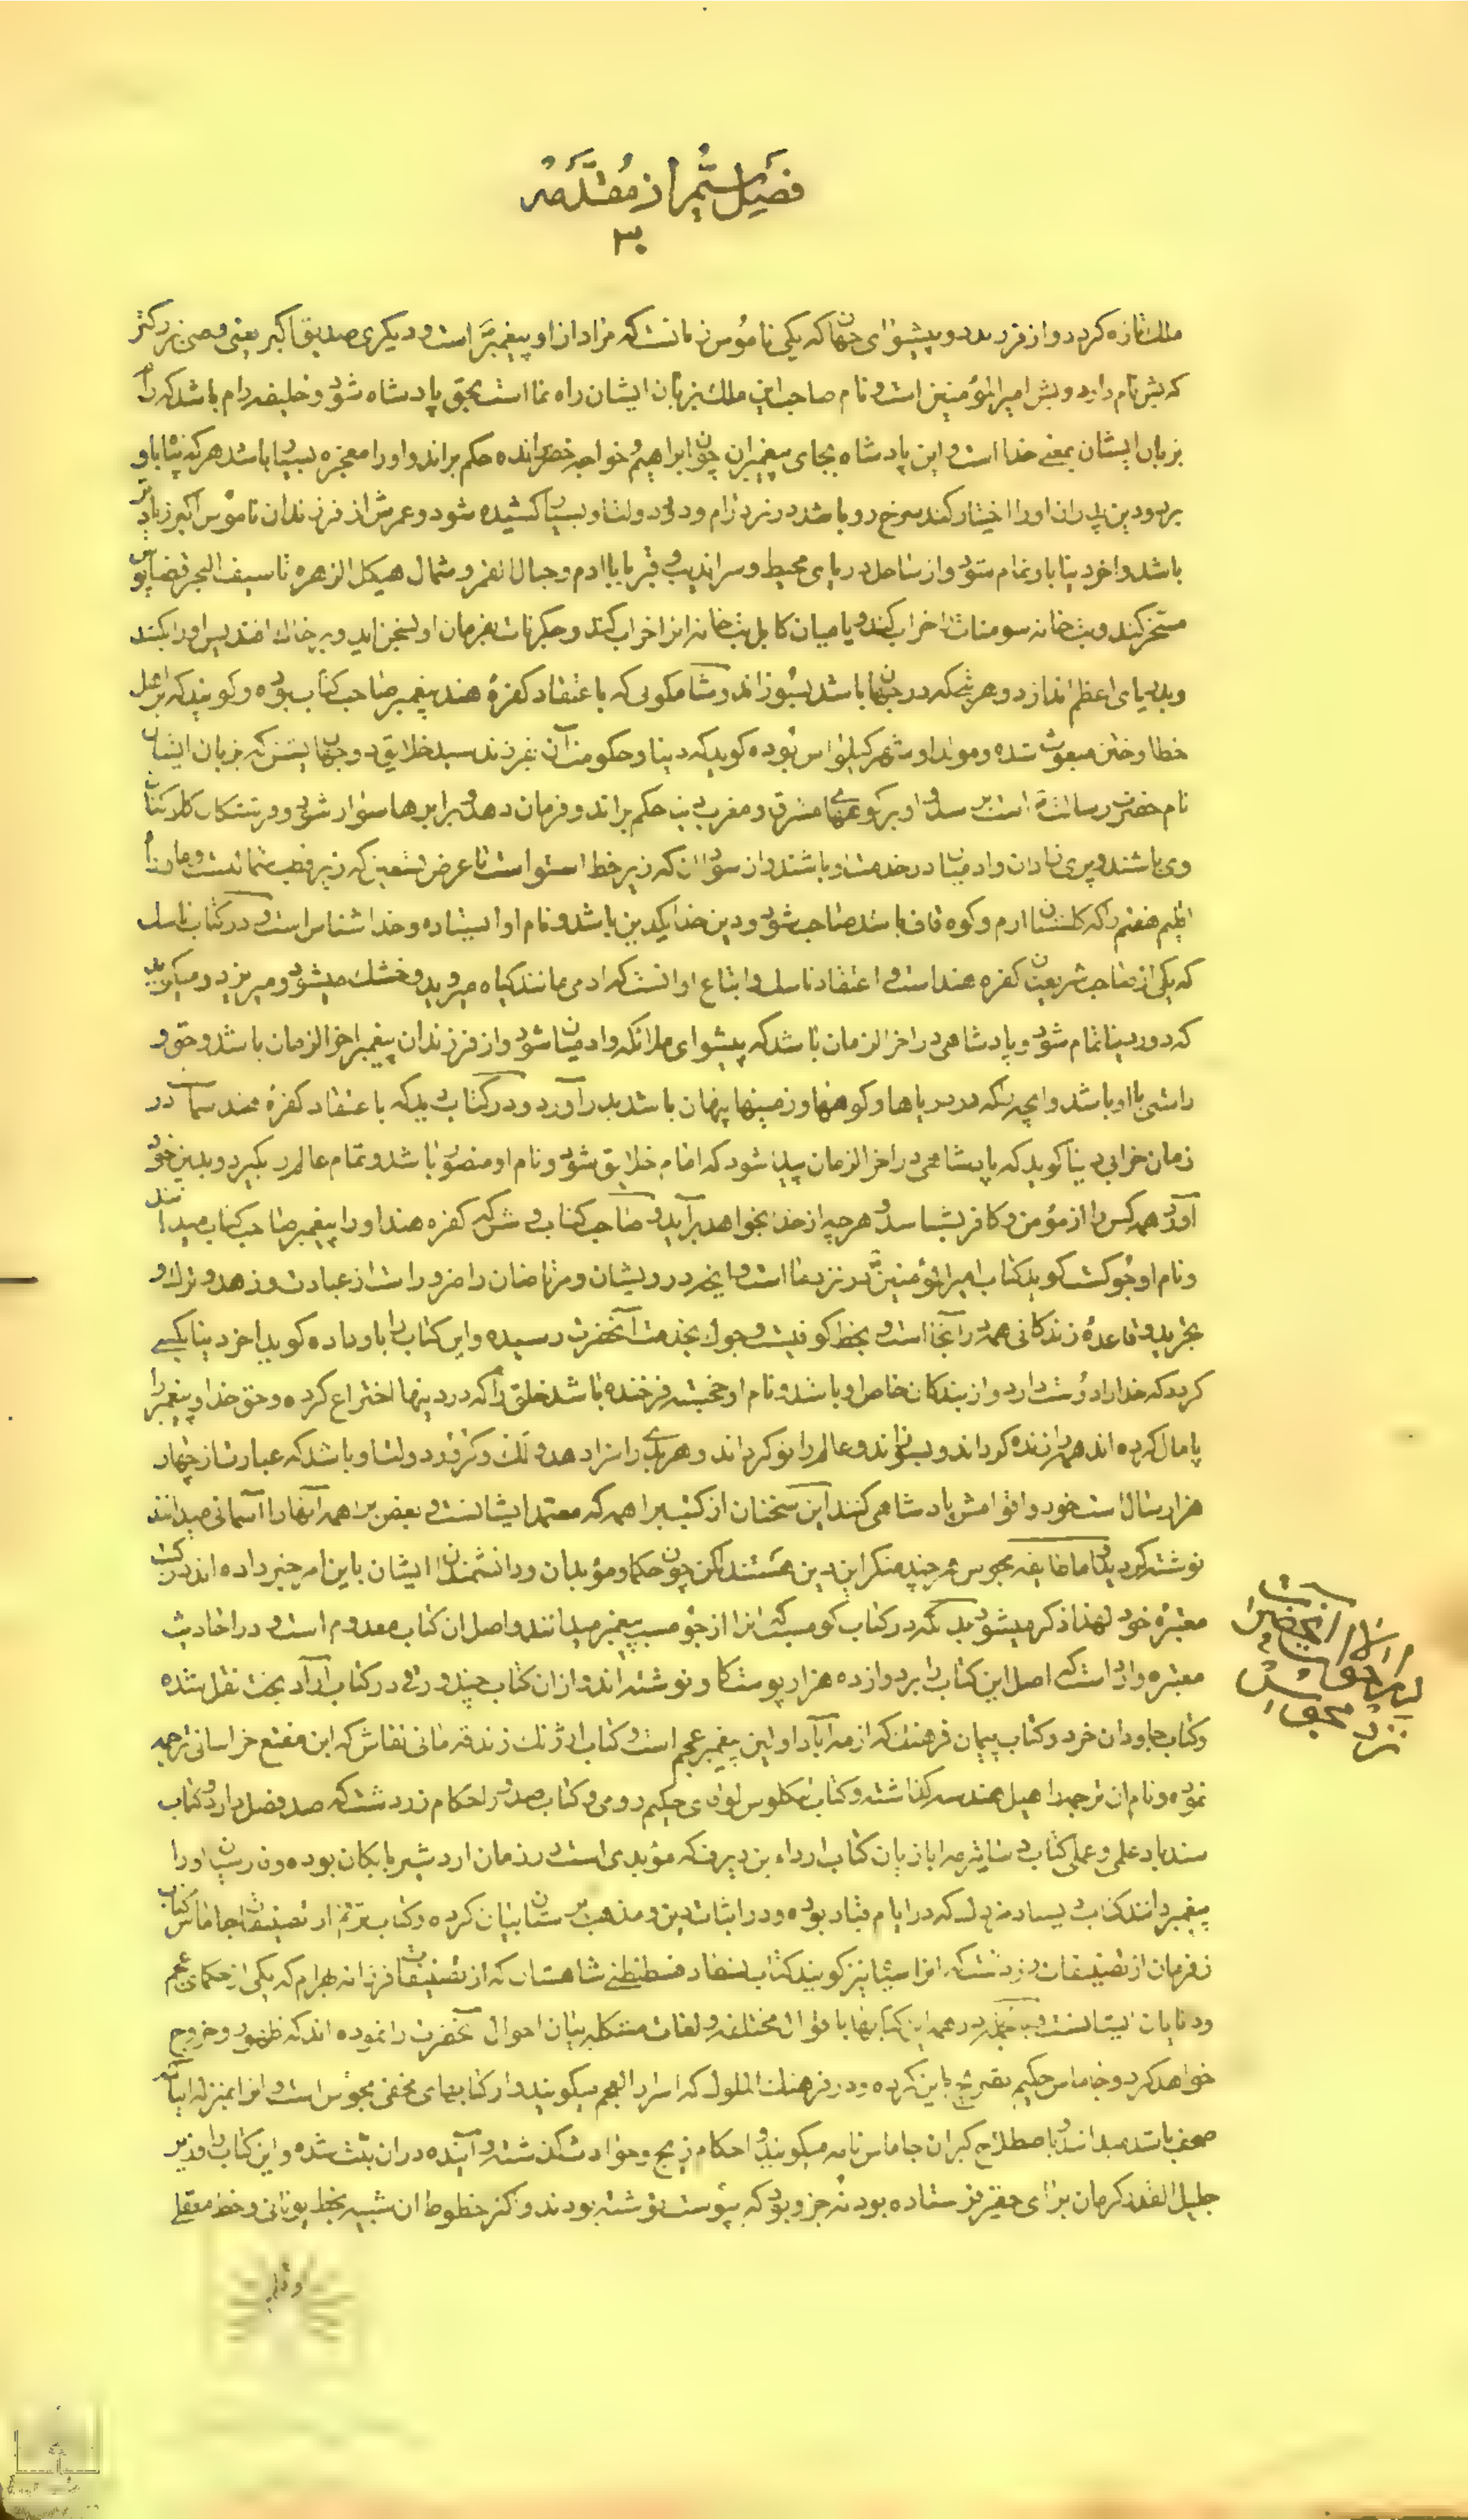 فصل ششم از مقدمه
۳۰
ملک تازه گردد و از فرزند دو پیشوای جهان که یکی ناموس زمانست که مراد از او پیغمبر است و دیگری صدیق اکبر یعنی وصی بزرگتر
که بشن نام دارد و بش امیر المؤمنین است و نام صاحب این ملک بزبان ایشان راه نما است بحق پادشاه شود و خلیفه رام باشد که رام
بزبان ایشان بمعنی خدا است و این پادشاه بجای پیغمبران چون ابراهیم و خواجه خضر زنده حکم براند و او را معجزه بسیار باشد هر که پناه باو
برد و دین پدران او را اختیار کند سرخ رو باشد در نزد رام و دولت او بسیار کشیده شود و عمرش از فرزندان ناموس اکبر زیادتر
باشد و آخر دنیا باو تمام شود و از ساحل دریای محیط و سراندیب و قبر بابا آدم و جبال القمر و شمال هیکل الزهره تا سیف البحر و اقیانوس
مسخر کند و بتخانه سومنات را خراب کند و بامیان کابل بتخانه انرا خراب کند و جکرنات بفرمان او بسخن آید و بر خاک افتد پس او را بکند
و بدریای اعظم اندازد و هر بتی که در جهان باشد بسوزاند و شاکمونی که باعتقاد کفره هند پیغمبر صاحب کتاب بوده و گویند که بر اهل
خطا و ختن مبعوث شده و مولد او شهر کیلواس بوده گوید که دنیا و حکومت آن بفرزند سید خلایق دو جهان پشن که بزبان ایشان
نام حضرت رسالت است برسد و او بر کوههای مشرق و مغرب دنیا حکم براند و فرمان دهد و بر ابرها سوار شود و فرشتگان کارکنان
وی باشند و پری زادان و آدمیان در خدمت او باشند و از سودان که زیر خط استواست تا عرض تسعین که زیر قطب شمالیست و ماوراء
اقلیم هفتم را که گلستان ارم و کوه قاف باشد صاحب شود و دین خدا یکدین باشد و نام او ایستاده و خدا شناس است و در کتاب ناسل
که یکی از صاحب شریعتان کفره هند است و اعتقاد ناسل و اتباع او آنست که ادمی مانند کیاه میروید و خشک میشود و میریزد و میگوید
که دور دنیا تمام شود و پادشاهی در اخر الزمان باشد که پیشوای ملائکه و ادمیان شود و از فرزندان پیغمبر اخر الزمان باشد و حق و
راستی با او باشد و انچه که در دریاها و کوهها و زمینها پنهان باشد بدر آورد و در کتاب دید که باعتقاد کفره هند سماد در
زمان خرابی دنیا گوید که پادشاهی در اخر الزمان پیدا شود که امام خلایق شود و نام او منصور باشد و تمام عالم را بگیرد و بدین خود
آورد همه کس را از مؤمن و کافر بشناسد و هر چه از خدا بخواهد بر آید و صاحب کتاب وشن که کفره هند او را پیغمبر صاحب کتاب میدانند
و نام او جوک است گوید کتاب امیر المؤمنین در نزد ما است و انچه درویشان و مرتاضان را ضرور است از عبادت و زهد و ترک و
تجرید و قاعده زندگانی همه در آنجا است و بخط کوفیست و جوک بخدمت آنحضرت رسیده و این کتاب را باو داده گوید اخر دنیا بکسی
گردد که خدا را دوست دارد و از بندگان خاص او باشد و نام او خجسته فرخنده باشد خلق را که در دینها اختراع کرده و حق خدا و پیغمبر را
پامال کرده اند همه را زنده گرداند و بسوزاند و عالم را نو گرداند و هر بدی را سزا دهد و یک کرور دولت او باشد که عبارت از چهار
هزار سال است خود و اقوامش پادشاهی کنند این سخنان از کتب براهمه که معتمد ایشانست و بعضی براهمه آنها را آسمانی میدانند
نوشته گردید و اما طایفه مجوس هر چند منکر این دین هستند لکن چون حکما و مؤبدان و دانشمندان ایشان باین امر خبر داده اند در کتب
معتبره خود لهذا ذکر میشود بدانکه در کتاب کومسب که انرا از جومسب پیغمبر میدانند و اصل ان کتاب معدوم است و در احادیث
معتبره وارد است که اصل این کتاب را بر دوازده هزار پوست گاو نوشته اند و از ان کتاب چند ورقی در کتاب اراد بخت نقل شده
و کتاب جاودان خرد و کتاب پیمان فرهنک که از مه آباد اولین پیغمبر عجم است و کتاب ارژنک زندقه مانی نقاش که ابن مقنع خراسانی ترجمه
نموده و نام ان ترجمه را هیل هندسه گذاشته و کتاب تنکلوس لوقای حکیم رومی و کتاب صد در احکام زردشت که صد فصل دارد و کتاب
سندباد علمی و عملی کتاب دساتیر مه اباذیان کتاب ارداء بن دیرف که مؤبدی است در زمان اردشیر بابکان بوده و فارسیان او را
پیغمبر دانند کتاب دبستان مزدک که در ایام قباد بوده و در اثبات دین و مذهب پرستان بیان کرده و کتاب ترنم از تصنیفات جاماس کتاب
زفرمان از تصنیفات زردشت که انرا سیتا نیز گویند کتاب شارستان که از تصنیفات فرزانه بهرام که یکی از حکمای عجم
و دانایان ایشانست در همه این کتابها باقوال مختلفه و لغات متشکله بیان احوال آنحضرت را نموده اند که ظهور و خروج
خواهد کرد و جاماس حکیم تصریح باین کرده و در فرهنک الملوک که اسرار العجم میگویند و از کتابهای مخفی مجوس است و انرا بمنزله ایات
صحف باستان میدانند و باصطلاح گبران جاماس نامه میگویند و احکام زیج و حوادث گذشته و آینده در ان ثبت شده و این کتاب را وزیر
جلیل القدر کرمان برای حقیر فرستاده بود نه جزو بود که بپوست نوشته بودند و اکثر خطوط ان شبیه بخط یونانی و خط معقلی
نزد مجوس